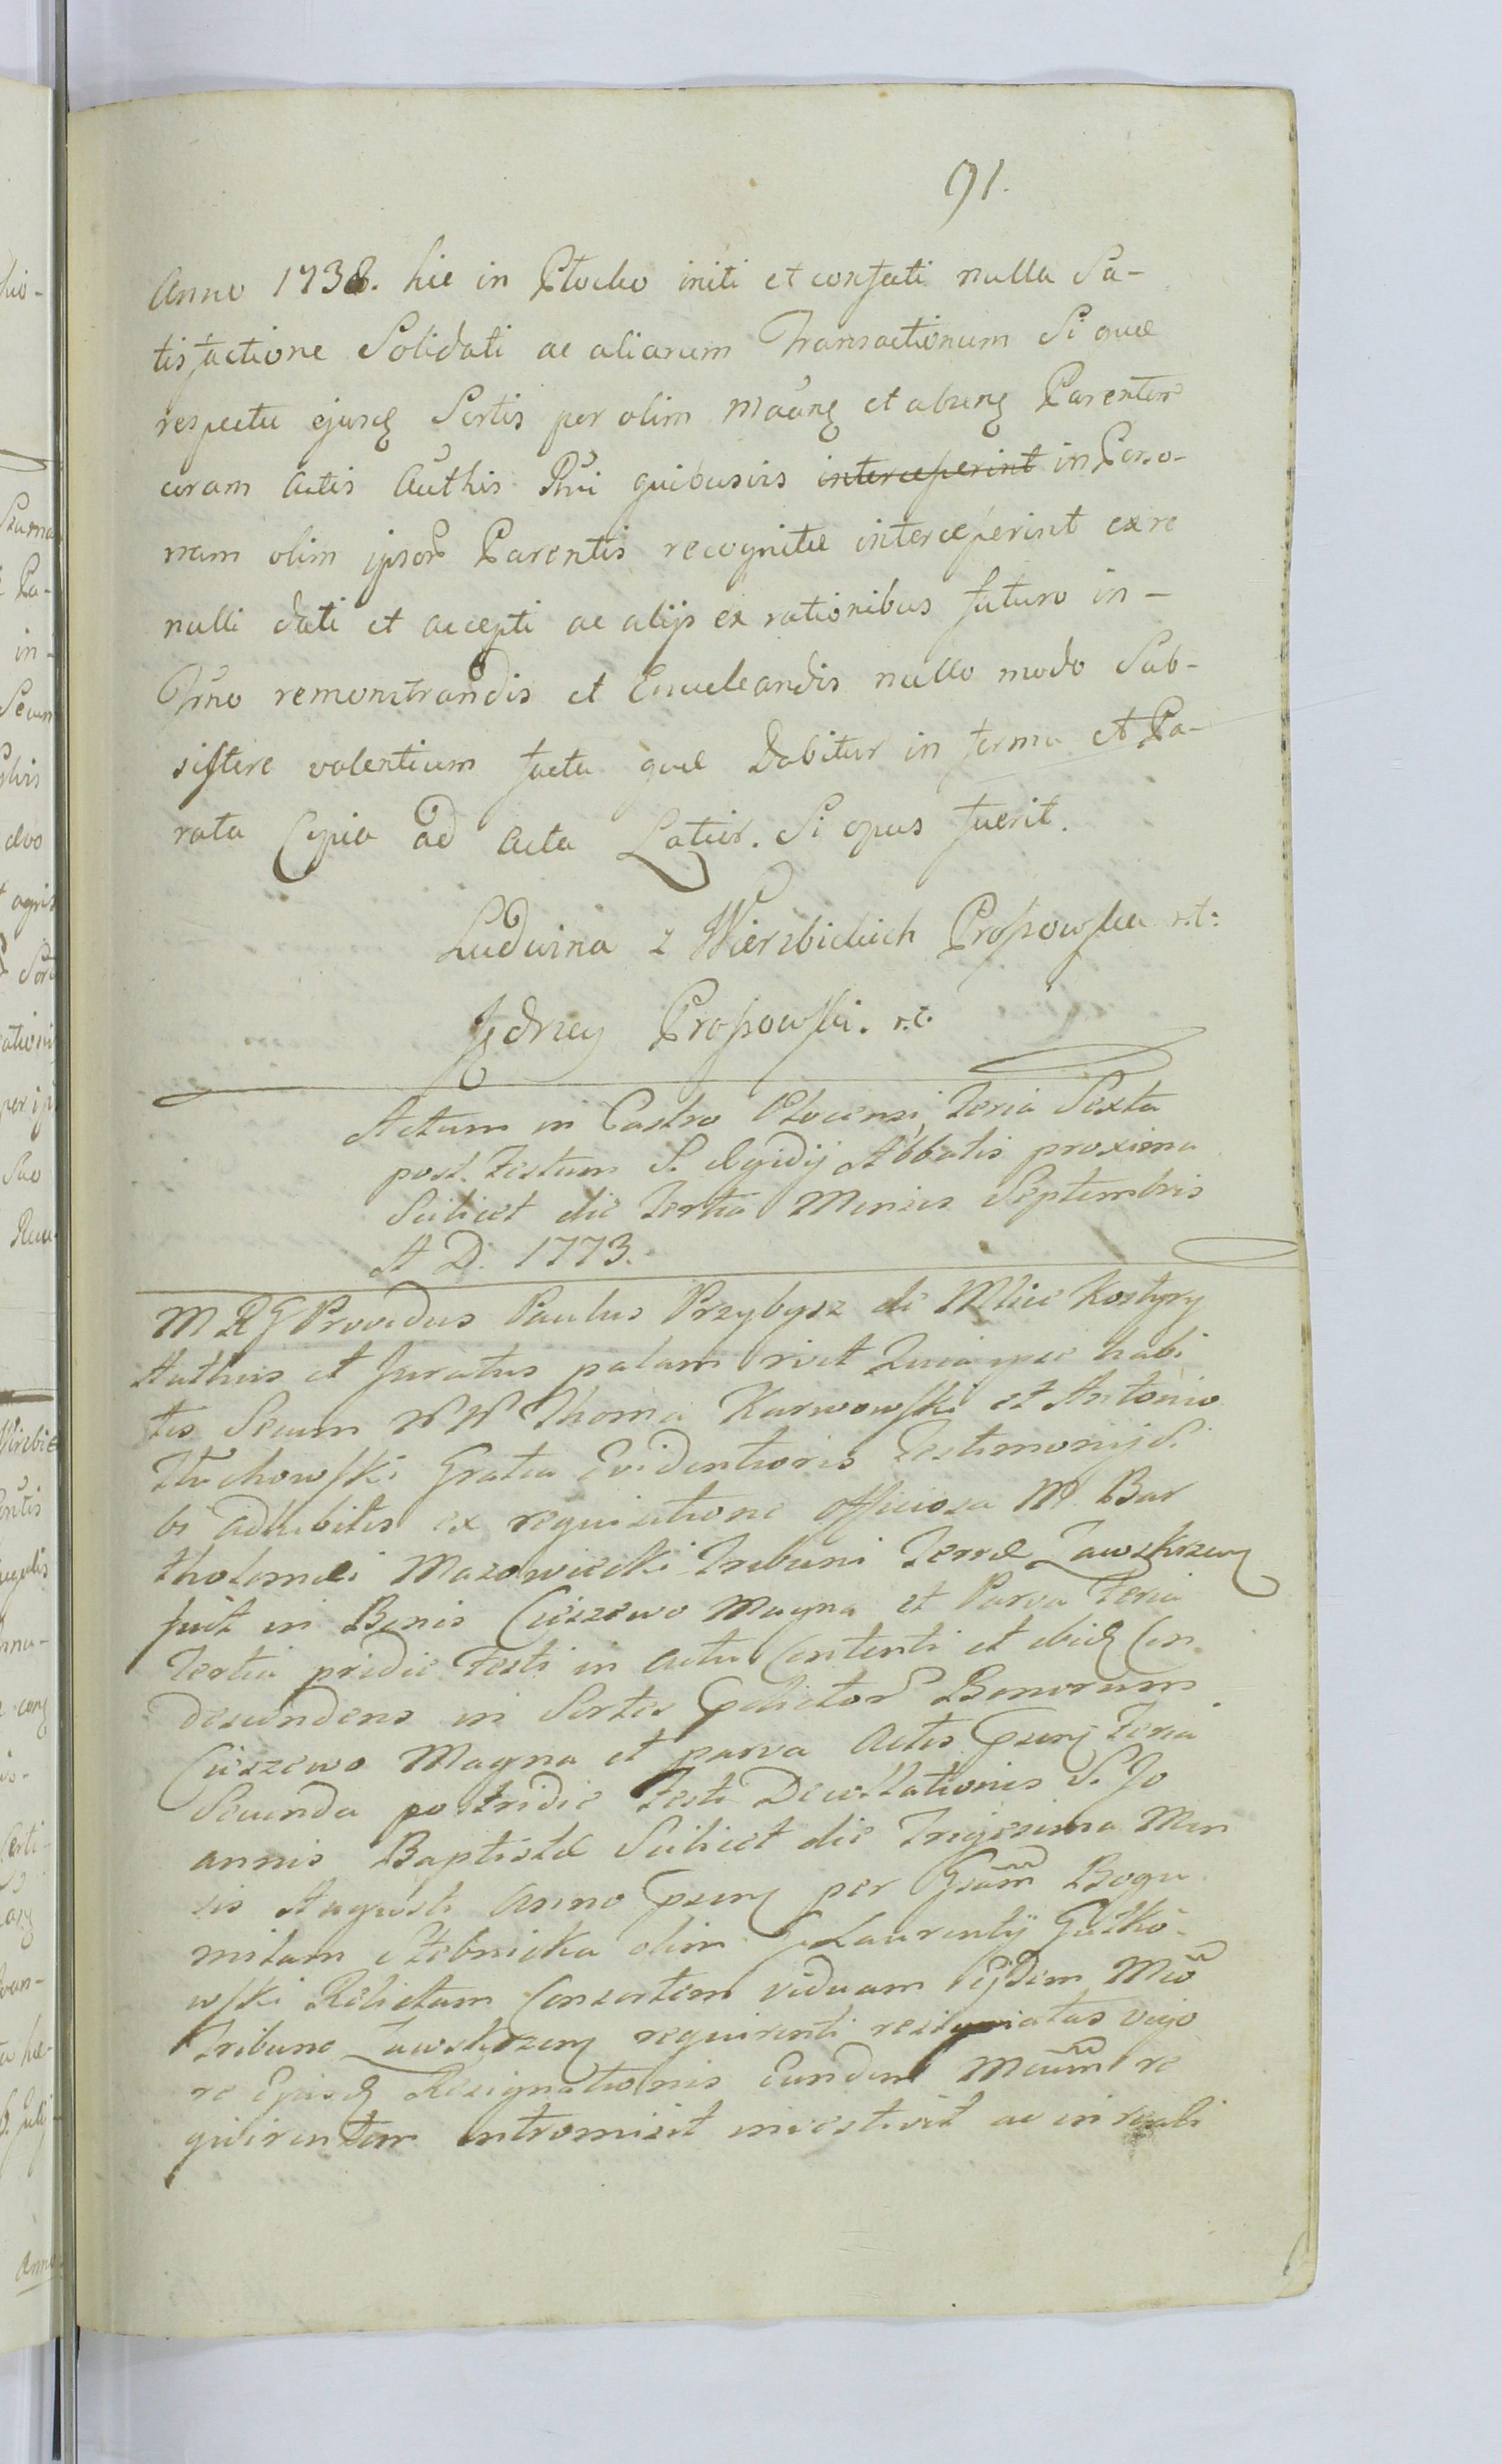 91.
Anno 1738. hic in Plocko initi et confecti nulla Sa-
tisfactione Solidati ac aliarum Transactionum Si quæ
respectu ejusq Sortis per olim Maānq et abseng Parentem
coram Actis Authis Rni quibusvis interceperint in Perso-
nam olim ipsor Parentis recognitæ interceperint ex re
nulli dati et accepti ac alijs ex rationibus futuro in-
Trno remonstrandis et Enucleandis nullo modo Sub-
sistere valentium facta quæ Dabitur in forma et Pa-
rata Copia ad Acta Latius. Si opus fuerit.
Ludwina z Wierzbickich Propowska r.t:
Jędrzey Propowski. r.t.
Actum in Castro Plocensi, Feria Sexta
post. Festum S. Ægidij Abbatis proxima
Scilicet die Tertia Mensis Septembris
A D. 1773.
M R G Providus Paulus Przybysz de Mlice Kostyry
Authus et Juratus palam rivit Quia ipse habi
tis Secum W W Thoma Karwowski et Antonio
Tłuchowski Gratia Evidentioris Testimonij Si
bi adhibitis ex requisitione officiosa M. Bar
tholomæi Mazowiecki Tribuni Terræ Zawskrzen
fuit in Bonis Cieszewo Magna et Parva Feria
Tertia pridie Festi in actu Contenti et ibiq Con
descendens in Sortes Pdictor Bonorum
Cieszewo Magna et parva Actis Psenj Feria
Secunda postridie Festi Decollationis S. Jo
annis Baptistæ Scilicet die Trigesima Men
sis Augusti Anno Psenj per Gsam Bogu
milam Stebnicka olim G Laurentij Gutko-
wski Relictam Consortem viduam Ejdem Mco
Tribuno Zawskrzen requirenti resignatas vigo
re Ejusq Resignationis Eundem Mcum re
quirentem intromisit investivit ac in reali